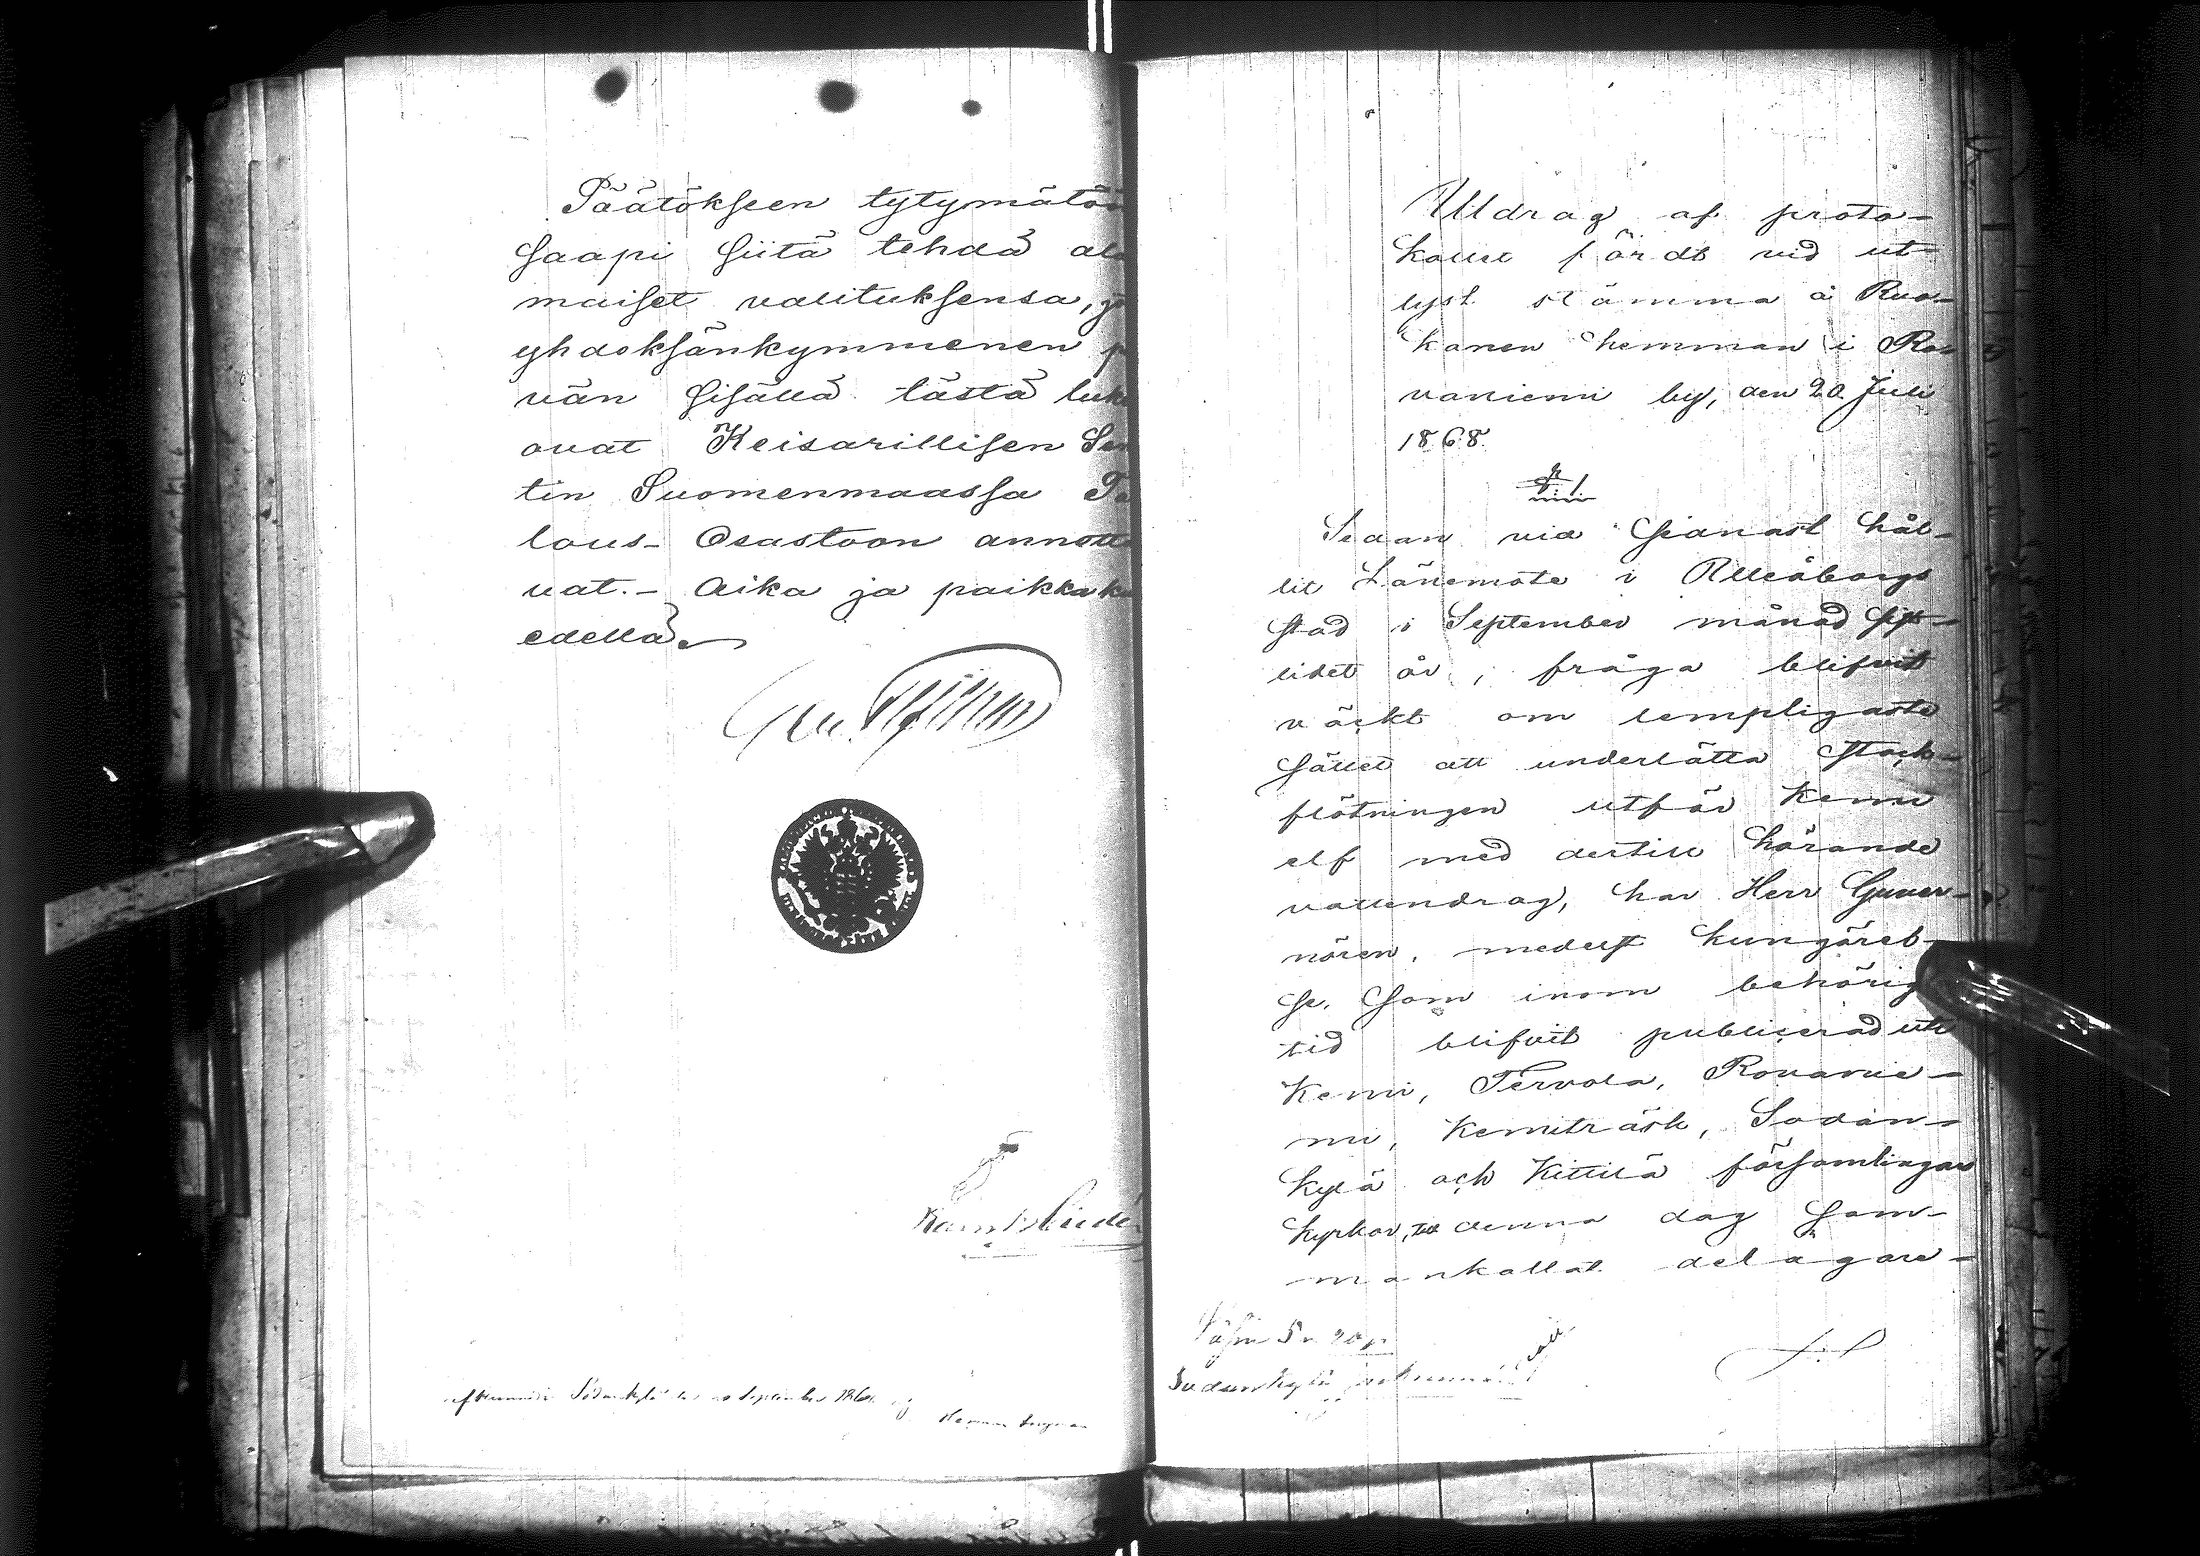 Päätökseen tytymätöi
saapi siitä tehdä al
maiset valituksensa, j
yhdeksänkymmenen p
vän sisällä tästä luk
ovat Keisarillisen Se
tin Suomenmaassa Ta
lous- Osastoon annett
vat. - Aika ja paikka k
edellä.
Sodankylä September
Utdrag af proto-
kollet fördt vid ut-
lyst stämma å Ruo-
kanen hemman i Ro-
vaniemi by, den 20 Juli
1868.
§ 1
Sedan vid senast hål-
lit Länemöte i Uleåborgs
stad i September månad sist-
lidet år, fråga blifvit
väckt om lempligaste
sättet att underlätta stock-
flötningen utför Kemi
elf med dertill hörande
vattendrag, har Herr Guver-
nören, medelst kungörel-
se, som inom behörig
tid blifvit publicerad uti
Kemi, Tervola, Rovanie-
mi, Kemiträsk, Sodan-
kylä och Kittilä församlingars
kyrkor, till denna dag sam-
mankallat delägare-
Sodankylä